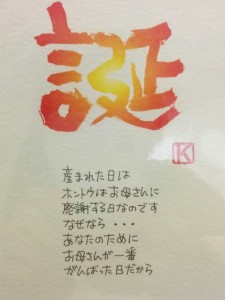 誕
K
産まれた日は
ホントウはお母さんに
感謝する日なのです
なぜなら・・・
あなたのために
お母さんが一番
がんばった日だから